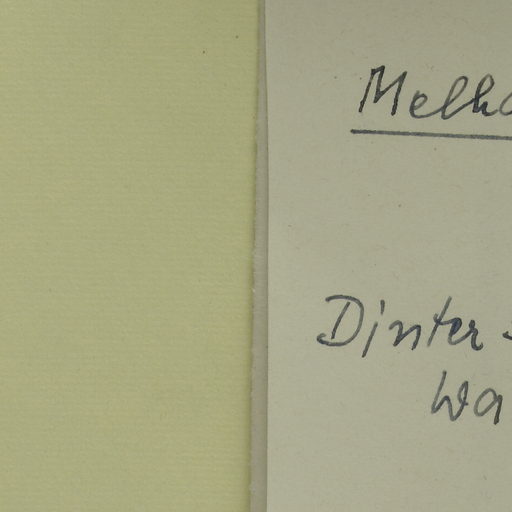 Melho
Dinter
Wa